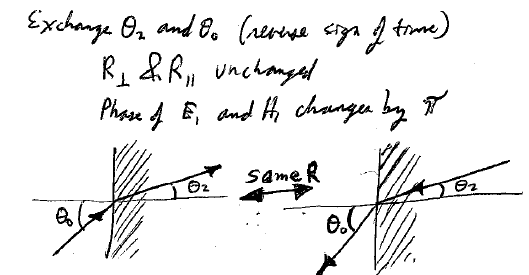 Exchange θ₂ and θ₀ (reverse sign of time)
R⊥ & R∥ unchanged
Phase of E₁ and H₁ changes by π
θ₀
θ₂
same R
θ₀
θ₂